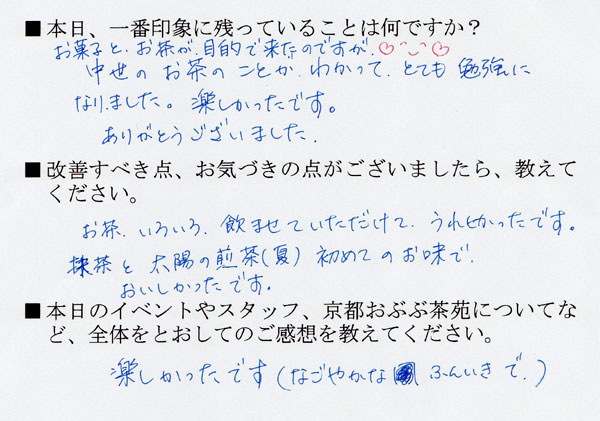 ■本日、一番印象に残っていることは何ですか？
お菓子と、お茶が、目的で来たのですが、♡◠‿◠♡
中世の お茶の ことが、わかって、とても 勉強に
なりました。楽しかったです。
ありがとうございました。
■改善すべき点、お気づきの点がございましたら、教えて
ください。
お茶、いろいろ、飲ませていただけて、うれしかったです。
抹茶と 太陽の煎茶(夏) 初めての お味で、
おいしかったです。
■本日のイベントやスタッフ、京都おぶぶ茶苑についてな
ど、全体をとおしてのご感想を教えてください。
楽しかったです(なごやかな ふんいきで、)